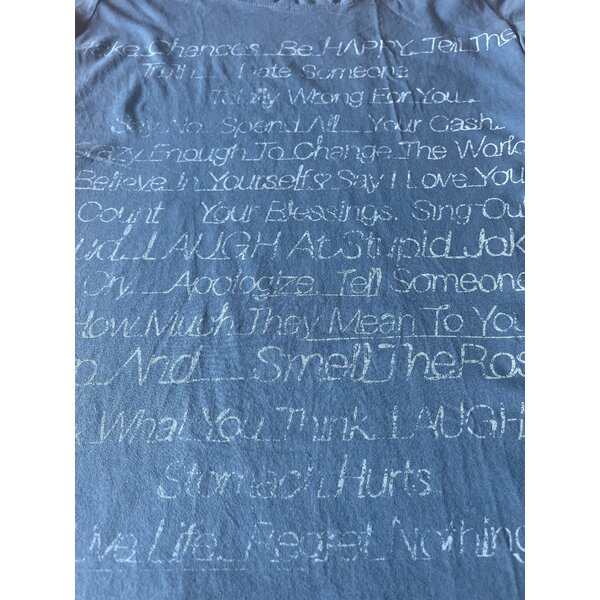 Chances. Be HAPPY. Tell The
Truth. Date Someone
Totally Wrong For You.
Say No. Spend All Your Cash.
Enough To Change The World
Believe In Yourself. Say I Love You
Count Your Blessings. Sing Ou
ud. LAUGH At Stupid Jok
Cry. Apologize. Tell Someone
How Much They Mean To You
p And Smell The Ros
What You Think LAUGH
Stomach Hurts.
Live Life. Regret Nothing